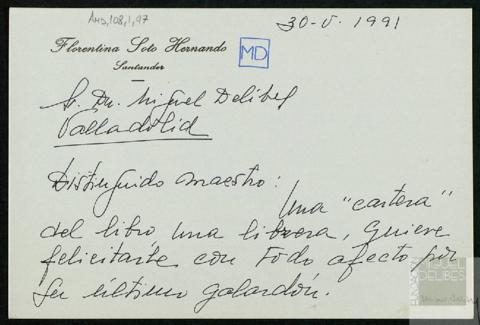 AMD,108,1,97
30-V. 1991
Florentina Soto Hernando
Santander
MD
Sr. Dn. Miguel Delibes
Valladolid
Distinguido maestro:
Una "cartera"
del libro, una librera, quiere
felicitarte con todo afecto por
su último galardón.
FUNDACIÓN
MIGUEL
DELIBES